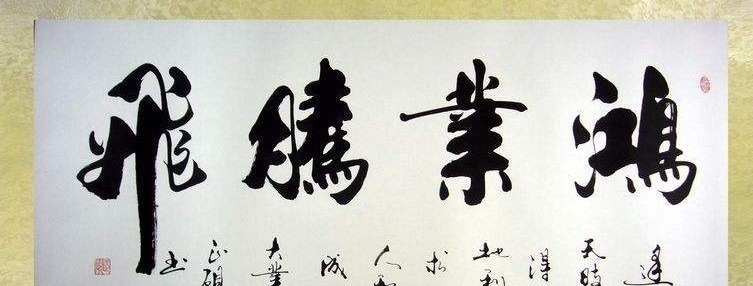 鴻業騰飛
逢
天時
得
地利
人
成
大業